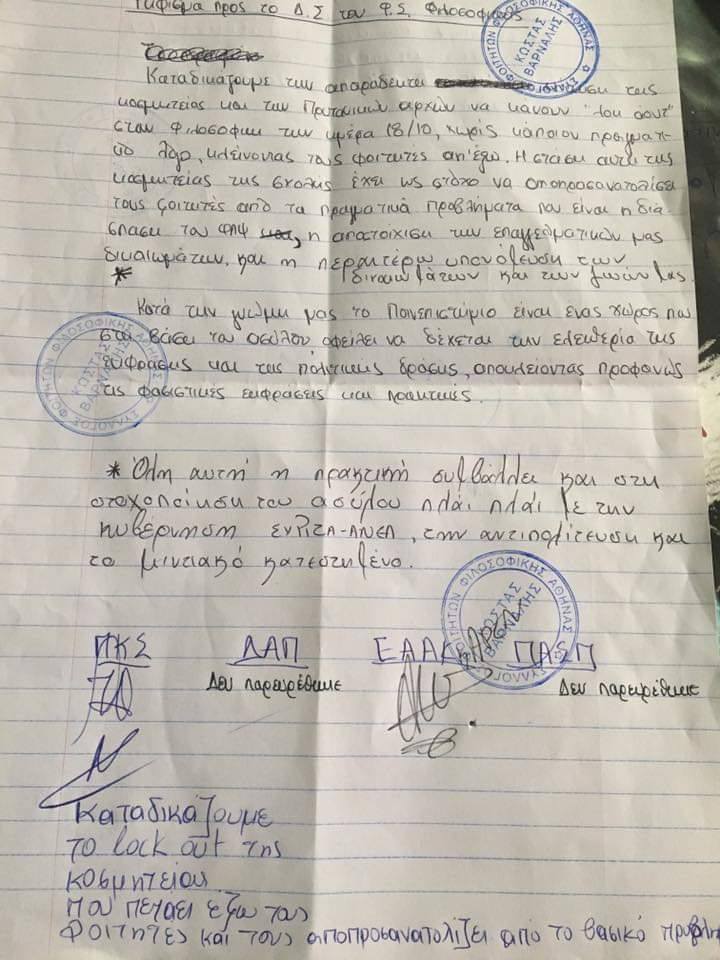 Ψήφισμα προς το Δ.Σ του Φ.Σ. Φιλοσοφικής
Καταδικάζουμε την απαράδεκτη της
κοσμητείας και των Πρυτανικών αρχών να κάνουν "λοκ άουτ"
στην Φιλοσοφική την ημέρα 18/10, χωρίς κάποιον πραγματι-
κό λόγο, κλείνοντας τους φοιτητές απ' έξω. Η στάση αυτή της
κοσμητείας της σχολής έχει ως στόχο να αποπροσανατολίσει
τους φοιτητές από τα πραγματικά προβλήματα που είναι η διά
σπαση του ΦΠΨ, η αποστοίχιση των επαγγελματικών μας
δικαιωμάτων, και η περαιτέρω υπονόμευση των
* δικαιωμάτων και των ζωών μας.
Κατά την γνώμη μας το Πανεπιστήμιο είναι ένας χώρος που
στη βάση του ασύλου οφείλει να δέχεται την ελευθερία της
έκφρασης και της πολιτικής δράσης, αποκλείοντας προφανώς
τις φασιστικές εκφράσεις και πρακτικές.
* Όλη αυτή η πρακτική συμβάλλει και στη
στοχοποίηση του ασύλου πλάι πλάι με την
κυβέρνηση ΣΥΡΙΖΑ-ΑΝΕΛ, την αντιπολίτευση και
το μιντιακό κατεστημένο.
ΠΚΣ ΔΑΠ ΕΑΑΚ ΑΡΕΝ ΠΑΣΠ
Δεν παρευρέθηκε Δεν παρευρέθηκε
Καταδικάζουμε
το lock out της
κοσμητείας
που πετάει έξω τους
φοιτητές και τους αποπροσανατολίζει από το βασικό
ΣΥΛΛΟΓΟΣ ΦΟΙΤΗΤΩΝ ΦΙΛΟΣΟΦΙΚΗΣ ΑΘΗΝΑΣ
ΚΩΣΤΑΣ
ΒΑΡΝΑΛΗΣ
ΣΥΛΛΟΓΟΣ ΦΟΙΤΗΤΩΝ ΦΙΛΟΣΟΦΙΚΗΣ ΑΘΗΝΑΣ
ΚΩΣΤΑΣ
ΒΑΡΝΑΛΗΣ
ΣΥΛΛΟΓΟΣ ΦΟΙΤΗΤΩΝ ΦΙΛΟΣΟΦΙΚΗΣ ΑΘΗΝΑΣ
ΚΩΣΤΑΣ
ΒΑΡΝΑΛΗΣ